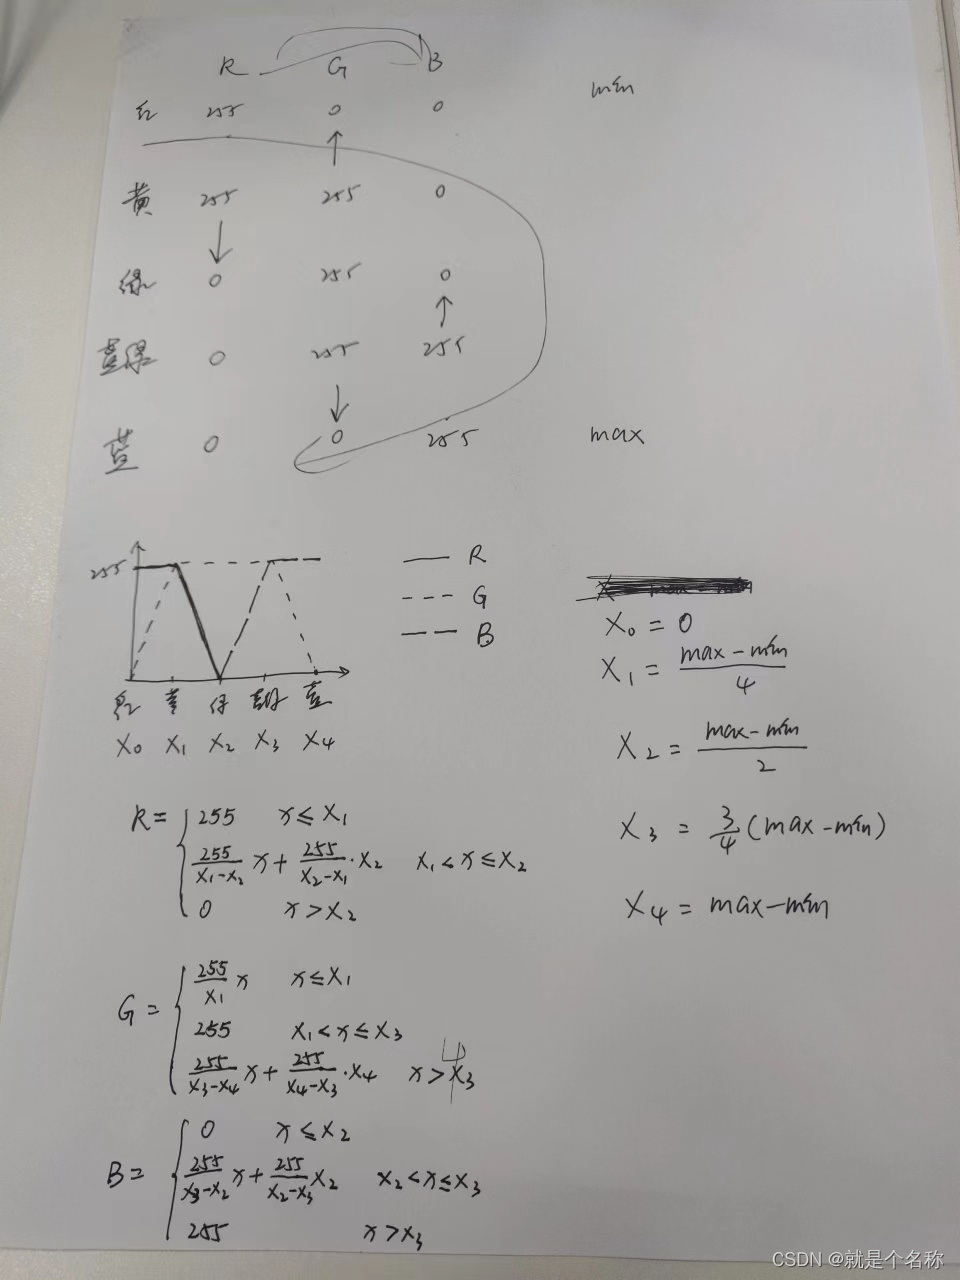 R G B
min
红 255 0 0
↑
黄 255 255 0
↓
绿 0 255 0
↑
蓝绿 0 255 255
↓
蓝 0 0 255
max
255
—— R
- - - G
— — B
红 黄 绿 蓝绿 蓝
X₀ X₁ X₂ X₃ X₄
X₀ = 0
X₁ = (max-min)/4
X₂ = (max-min)/2
X₃ = 3/4 (max-min)
X₄ = max-min
R = { 255 x ≤ X₁
255/(X₁-X₂) x + 255/(X₂-X₁) · X₂ X₁ < x ≤ X₂
0 x > X₂
G = { 255/X₁ x x ≤ X₁
255 X₁ < x ≤ X₃
255/(X₃-X₄) x + 255/(X₄-X₃) · X₄ x > X₃
B = { 0 x ≤ X₂
255/(X₃-X₂) x + 255/(X₂-X₃) X₂ X₂ < x ≤ X₃
255 x > X₃
CSDN @就是个名称